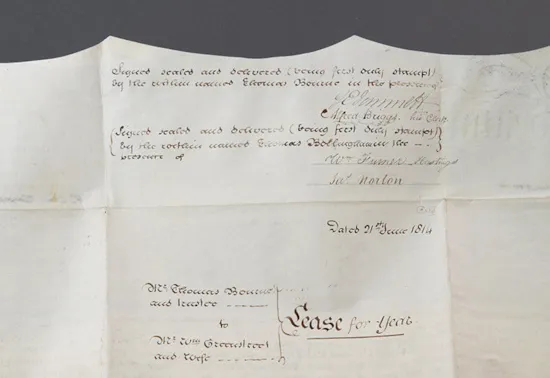 Signed sealed and delivered (being first duly stampt)
by the within named Thomas Bourne in the presence of
Alfred Briggs his Clerk
Signed sealed and delivered (being first duly stampt)
by the within named Thomas Bellingham in the - -
presence of
Wm Turner Hastings
Jas. Norton
Dated 21st June 1814
Mr. Thomas Bourne
and trustee
to
Mr. Wm Greenstreet
and Wife
Lease for Year